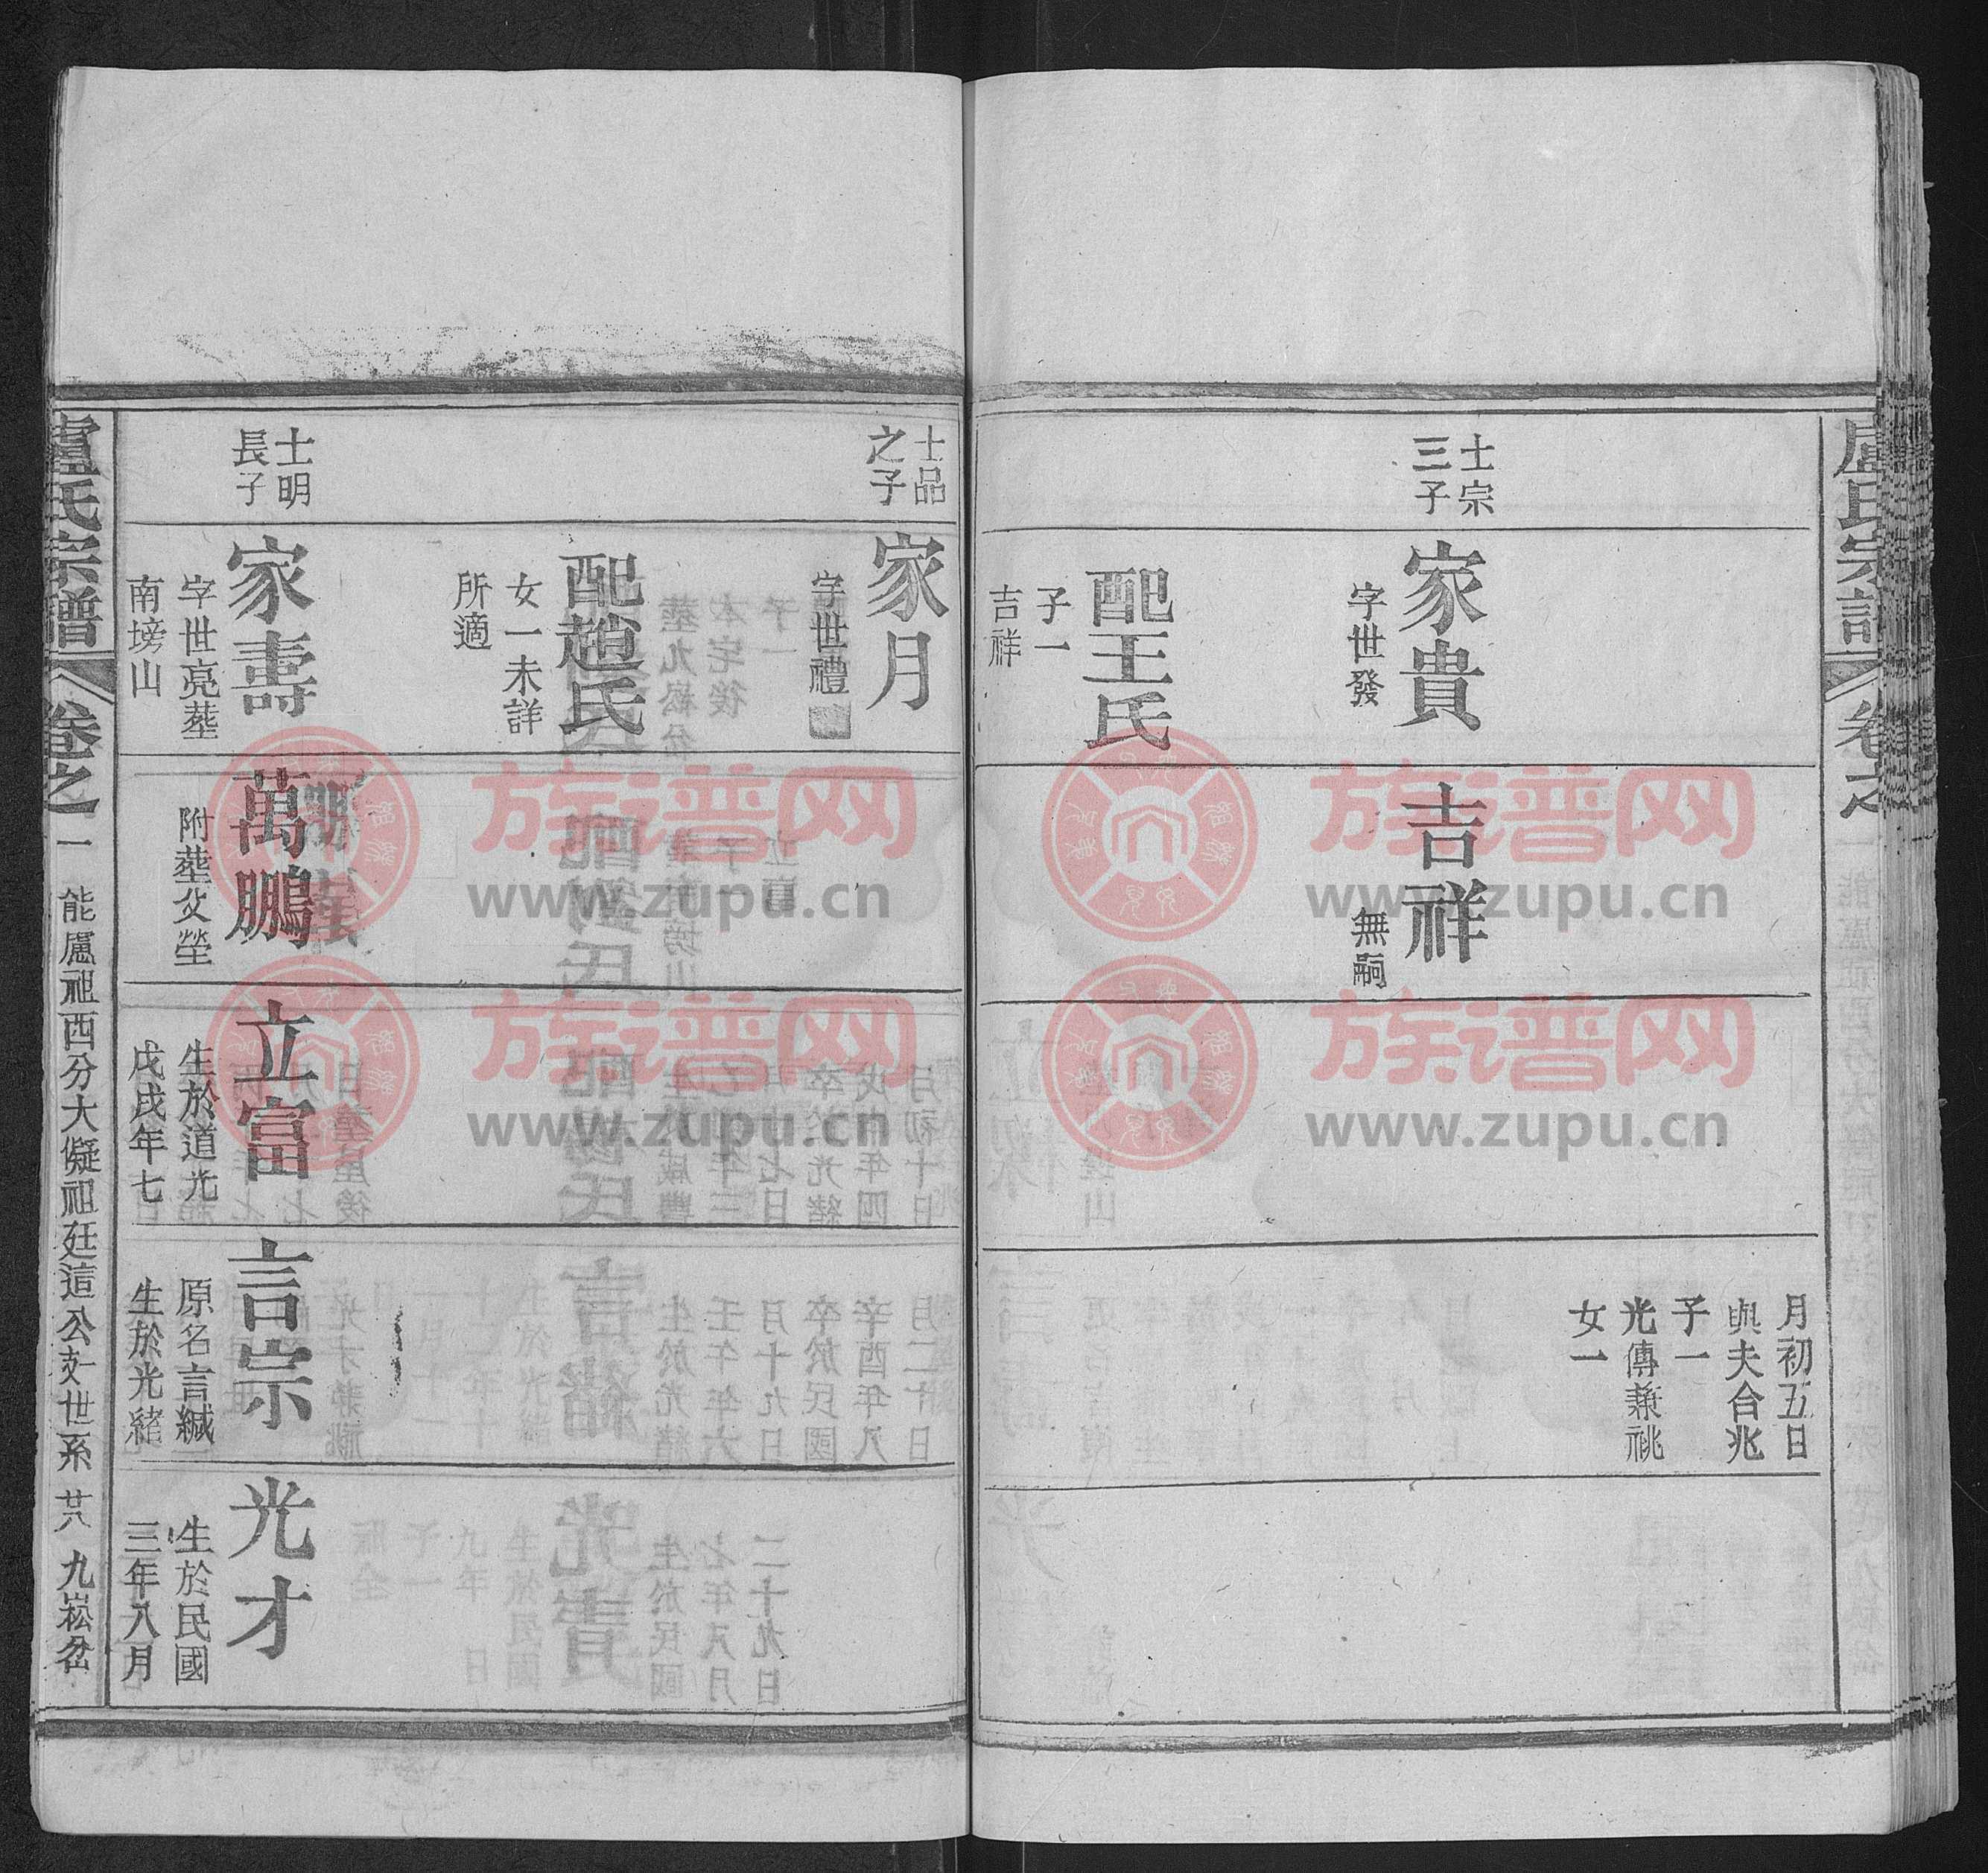 盧氏宗譜 卷之一
士宗
三子
家貴
字世發
配王氏
子一
吉祥
吉祥
無嗣
月初五日
與夫合兆
子一
光傳兼祧
女一
士品
之子
家月
字世禮
配趙氏
女一未詳
所適
士明
長子
家壽
字世亮塟
南塝山
萬鵬
附塟父塋
立富
生於道光
戊戌年七
言崇
原名言緘
生於光緒
光才
生於民國
三年八月
盧氏宗譜 卷之一 能盧祖酉分大儗祖廷這公支世系 廿八 九崧岔
族谱网
www.zupu.cn
族谱网
www.zupu.cn
族谱网
www.zupu.cn
族谱网
www.zupu.cn